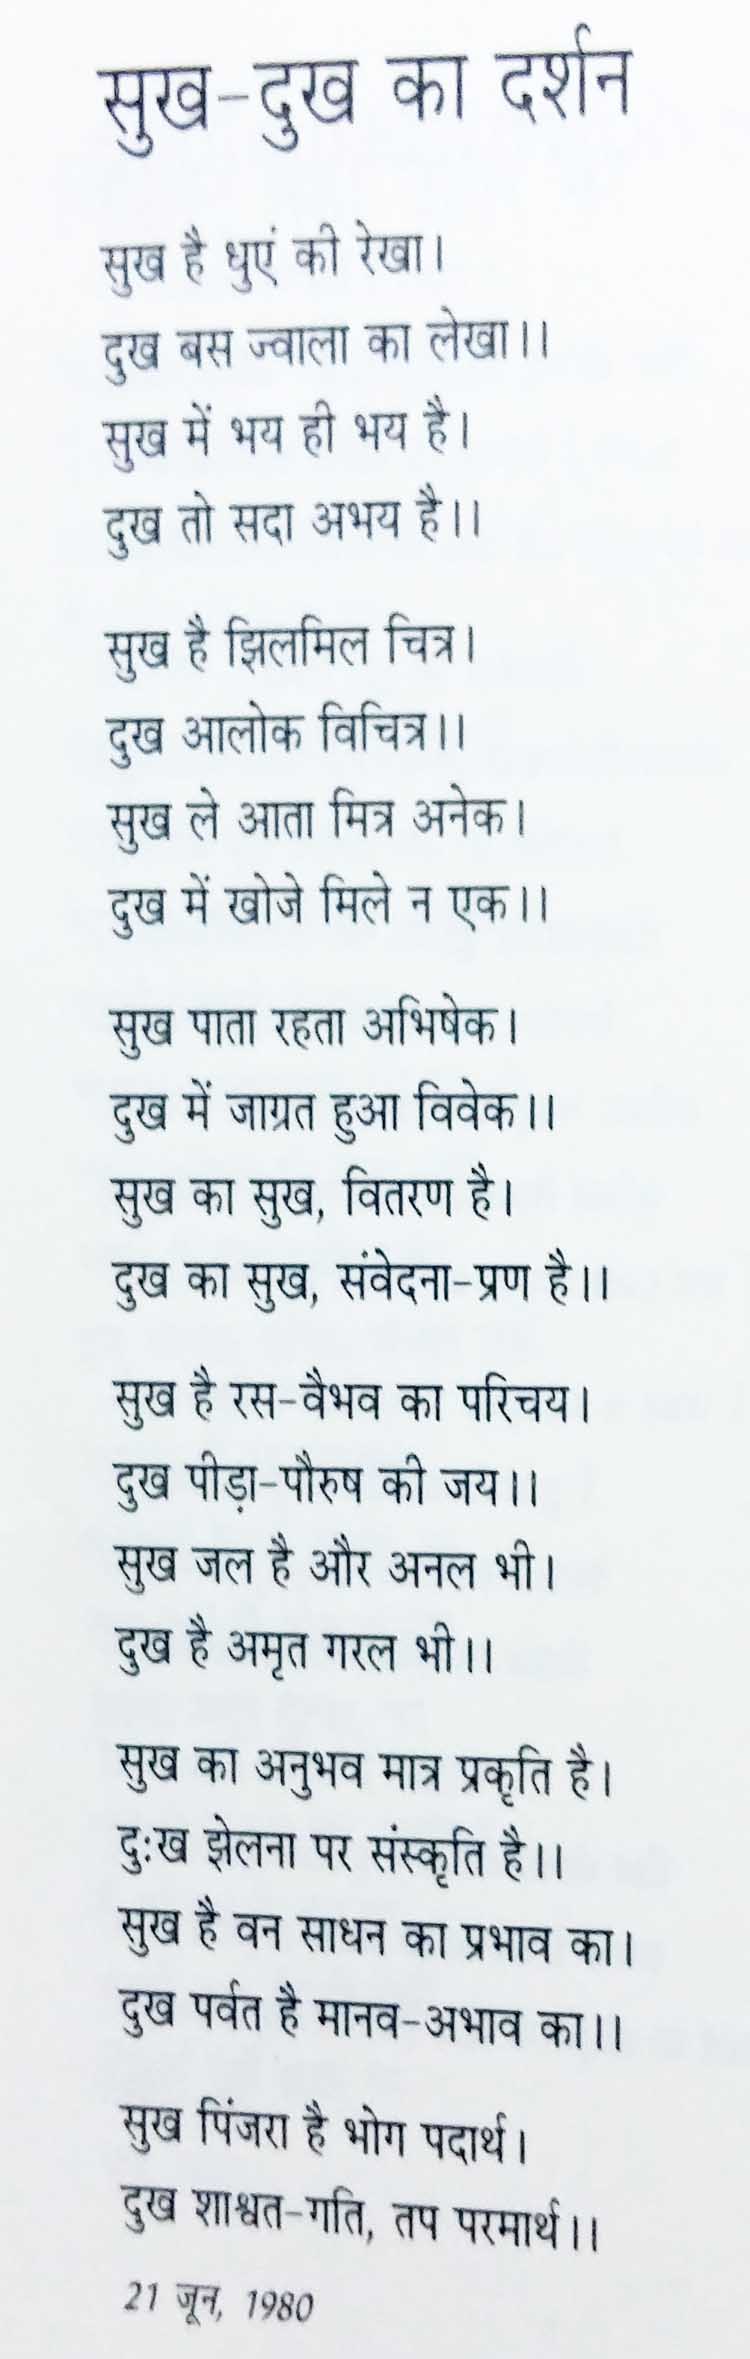 सुख-दुख का दर्शन
सुख है धुएं की रेखा।
दुख बस ज्वाला का लेखा।।
सुख में भय ही भय है।
दुख तो सदा अभय है।।
सुख है झिलमिल चित्र।
दुख आलोक विचित्र।।
सुख ले आता मित्र अनेक।
दुख में खोजे मिले न एक।।
सुख पाता रहता अभिषेक।
दुख में जाग्रत हुआ विवेक।।
सुख का सुख, वितरण है।
दुख का सुख, संवेदना-प्रण है।।
सुख है रस-वैभव का परिचय।
दुख पीड़ा-पौरुष की जय।।
सुख जल है और अनल भी।
दुख है अमृत गरल भी।।
सुख का अनुभव मात्र प्रकृति है।
दुःख झेलना पर संस्कृति है।।
सुख है वन साधन का प्रभाव का।
दुख पर्वत है मानव-अभाव का।।
सुख पिंजरा है भोग पदार्थ।
दुख शाश्वत-गति, तप परमार्थ।।
21 जून, 1980